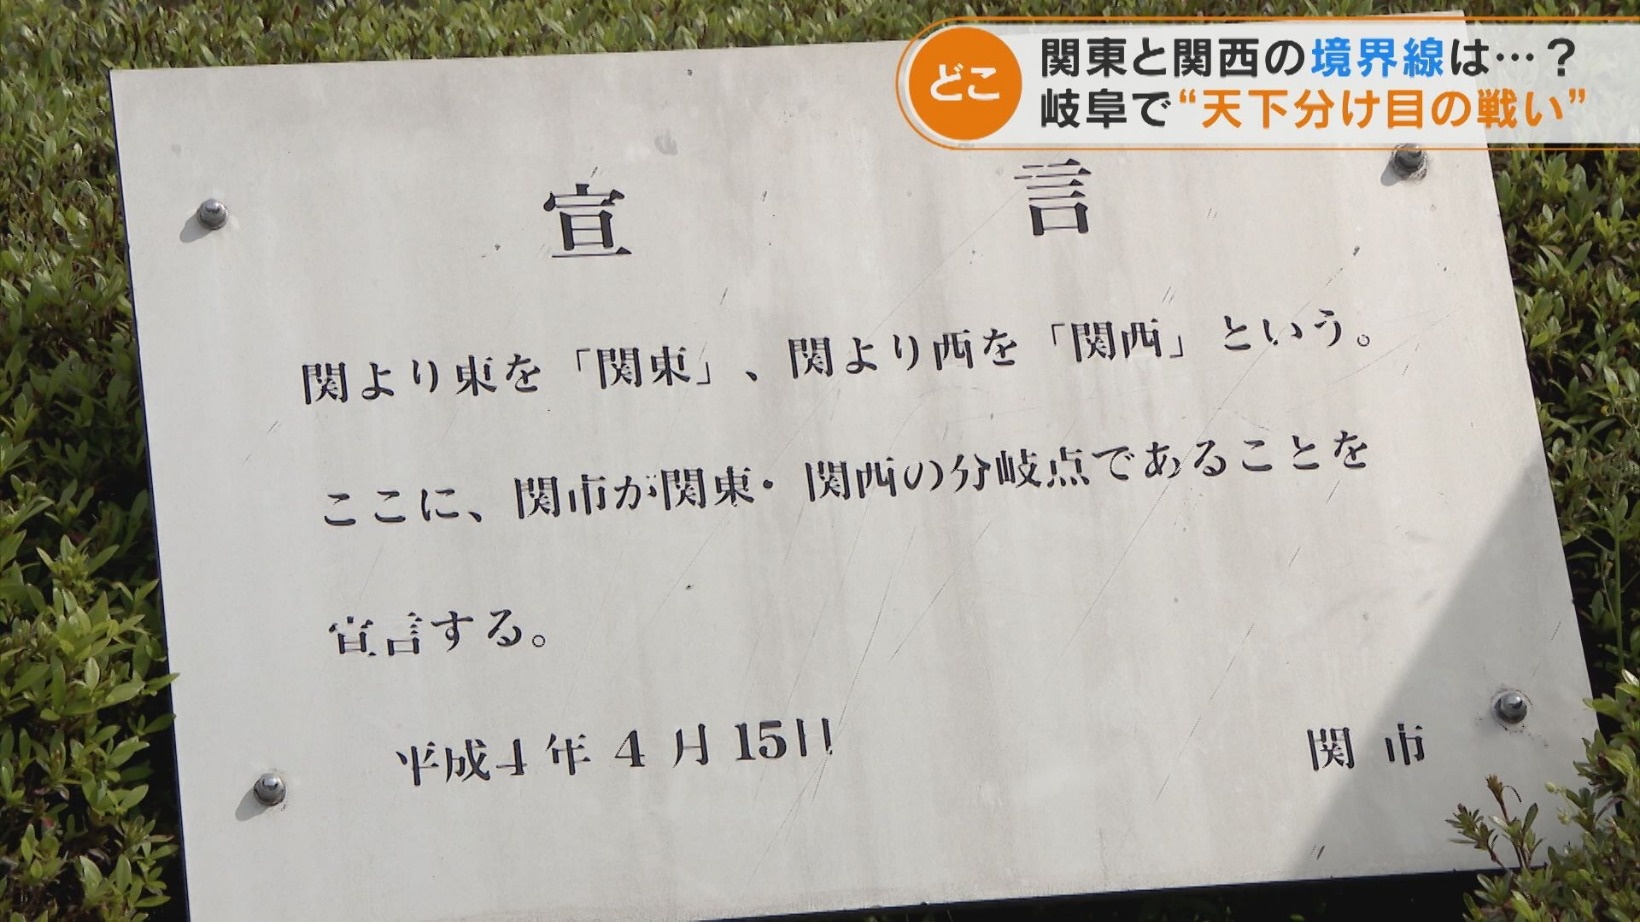 どこ
関東と関西の境界線は…？
岐阜で“天下分け目の戦い”
宣言
関より東を「関東」、関より西を「関西」という。
ここに、関市が関東・関西の分岐点であることを
宣言する。
平成4年4月15日
関市